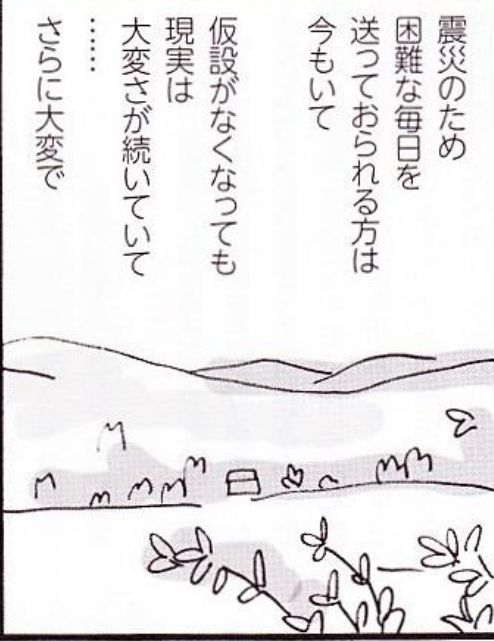 震災のため
困難な毎日を
送っておられる方は
今もいて
仮設がなくなっても
現実は
大変さが続いていて
……
さらに大変で